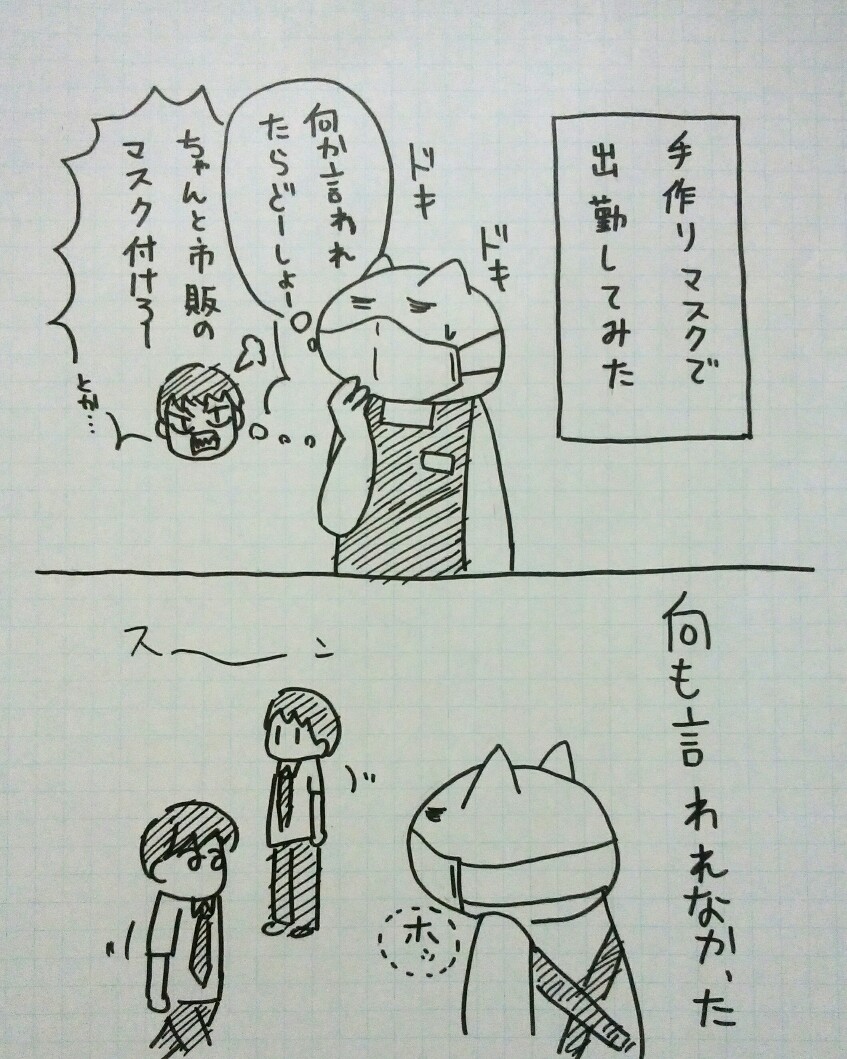 手作りマスクで
出勤してみた
ドキ
ドキ
何か言われ
たらどーしよー
ちゃんと市販の
マスク付けろー
とか…
何も言われなかった
スーン
ホッ